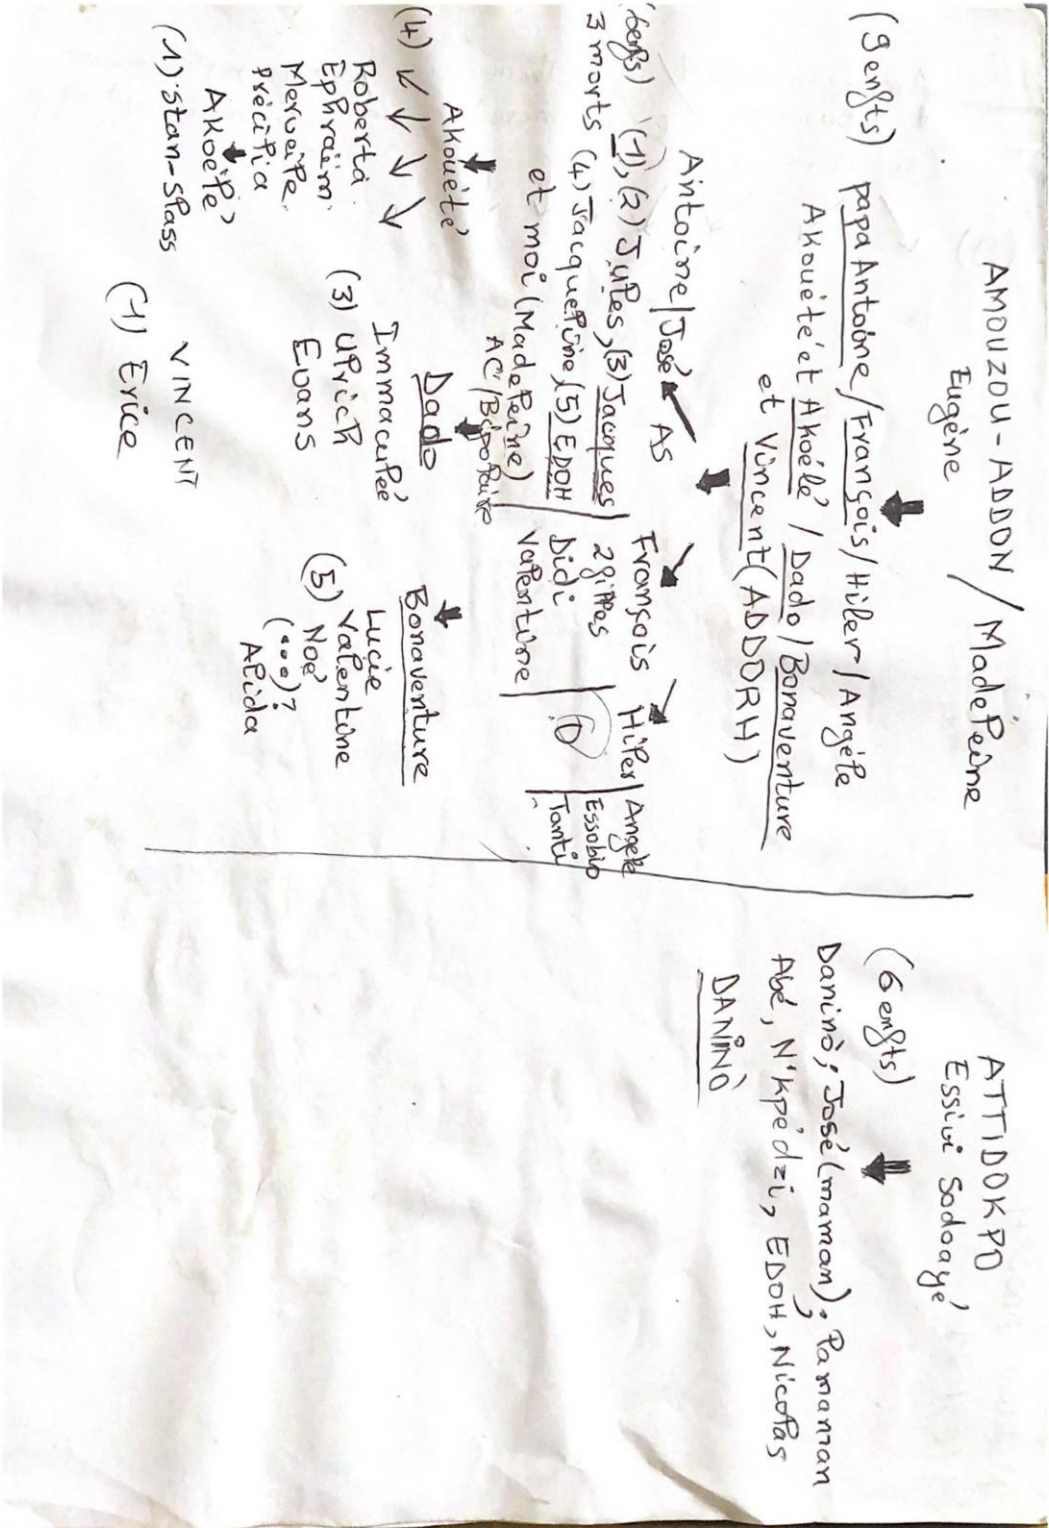 AMOUZOU-ADDON / Madeleine
Eugène
(9 enfts) papa Antoine / François / Hiler / Angèle
Akouété et Akoélé / Dado / Bonaventure
et Vincent (ADDORH)
Antoine / José As
3 morts (1), (2) Jules, (3) Jacques
(4) Jacqueline, (5) EDOH
et moi (Madeleine)
François
2 gilles
Didi
Valentine
Hiler
(1)
Angèle
Essobio
Tanti
Akouété
(4)
Roberta
Ephraïm
Merveille
Précilia
Dado
Immaculée
(3) Ulrich
Evans
Bonaventure
Lucie
(5) Valentine
Noé
(...)?
Alida
Akoélé
(1) Stan-Slass
VINCENT
(1) Erice
ATTIDOKPO
Essivi Sodoayé
(6 enfts)
Daninò, José (maman), Pamaman
Abé, N'kpédzi, EDOH, Nicolas
DANINÒ